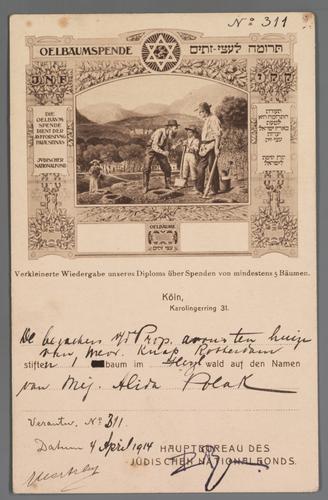 No 311
OELBAUMSPENDE
תרומה לעצי-זתים
J.N.F.
קקל
DIE
OELBAUM
SPENDE
DIENT DER
AUFFORSTUNG
PALÄSTINAS
JÜDISCHER
NATIONALFOND
קרן קימת
לישראל
OELBÄUME
עצי זתים
Verkleinerte Wiedergabe unseres Diploms über Spenden von mindestens 5 Bäumen.
Köln,
Karolingerring 31.
De bezoekers v/d Prop. avond ten huize
van Mevr. Knap, Rotterdam
stiften 1 baum im Herzl wald auf den Namen
van Mej. Alida Polak
Verantw. No 311.
Datum 4 April 1914
HAUPTBUREAU DES
JÜDISCHEN NATIONALFONDS.